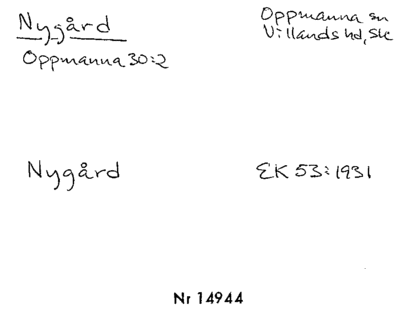 Nygård
Oppmanna 30:2
Oppmanna sn
Villands hd, Sk
Nygård
EK 53:1931
Nr 14944